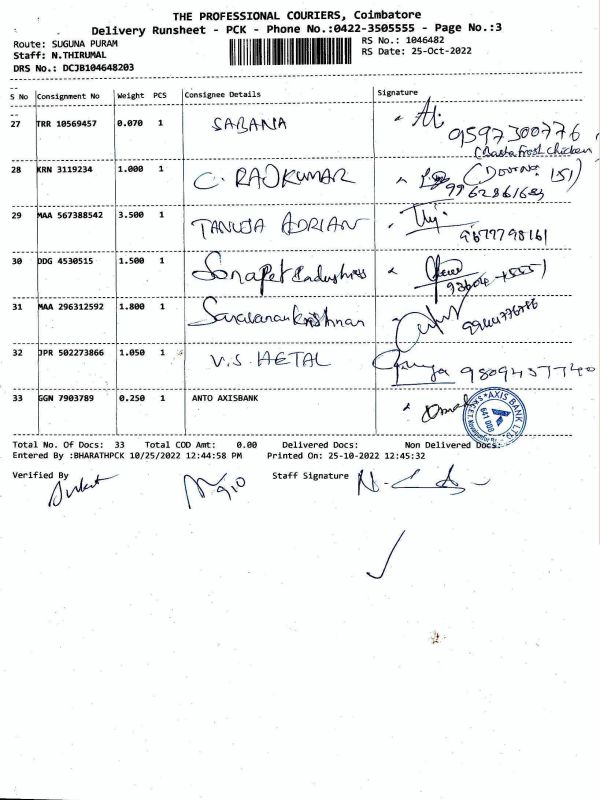 THE PROFESSIONAL COURIERS, Coimbatore
Delivery Runsheet - PCK - Phone No.:0422-3505555 - Page No.:3
Route: SUGUNA PURAM RS No.: 1046482
Staff: N.THIRUMAL RS Date: 25-Oct-2022
DRS No.: DCJB104648203
S No Consignment No Weight PCS Consignee Details Signature
27 TRR 10569457 0.070 1 SABANA
9597300776
28 KRN 3119234 1.000 1 C. RAJKUMAR (Door No: 151)
9962861683
29 MAA 567388542 3.500 1 TANUJA ADRIAN
9677798161
30 DDG 4530515 1.500 1 Sonapet Industries
31 MAA 296312592 1.800 1 Saravanan Krishnan
32 JPR 502273866 1.050 1 V.S. HETAL
9809457740
33 GGN 7903789 0.250 1 ANTO AXISBANK
AXIS BANK LTD
Total No. Of Docs: 33 Total COD Amt: 0.00 Delivered Docs: Non Delivered Docs:
Entered By :BHARATHPCK 10/25/2022 12:44:58 PM Printed On: 25-10-2022 12:45:32
Verified By Staff Signature